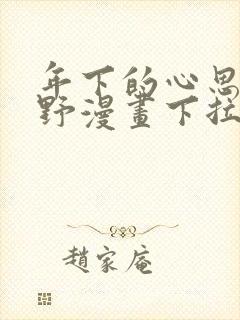 年下的心思
野漫畫下拉
趙家庵